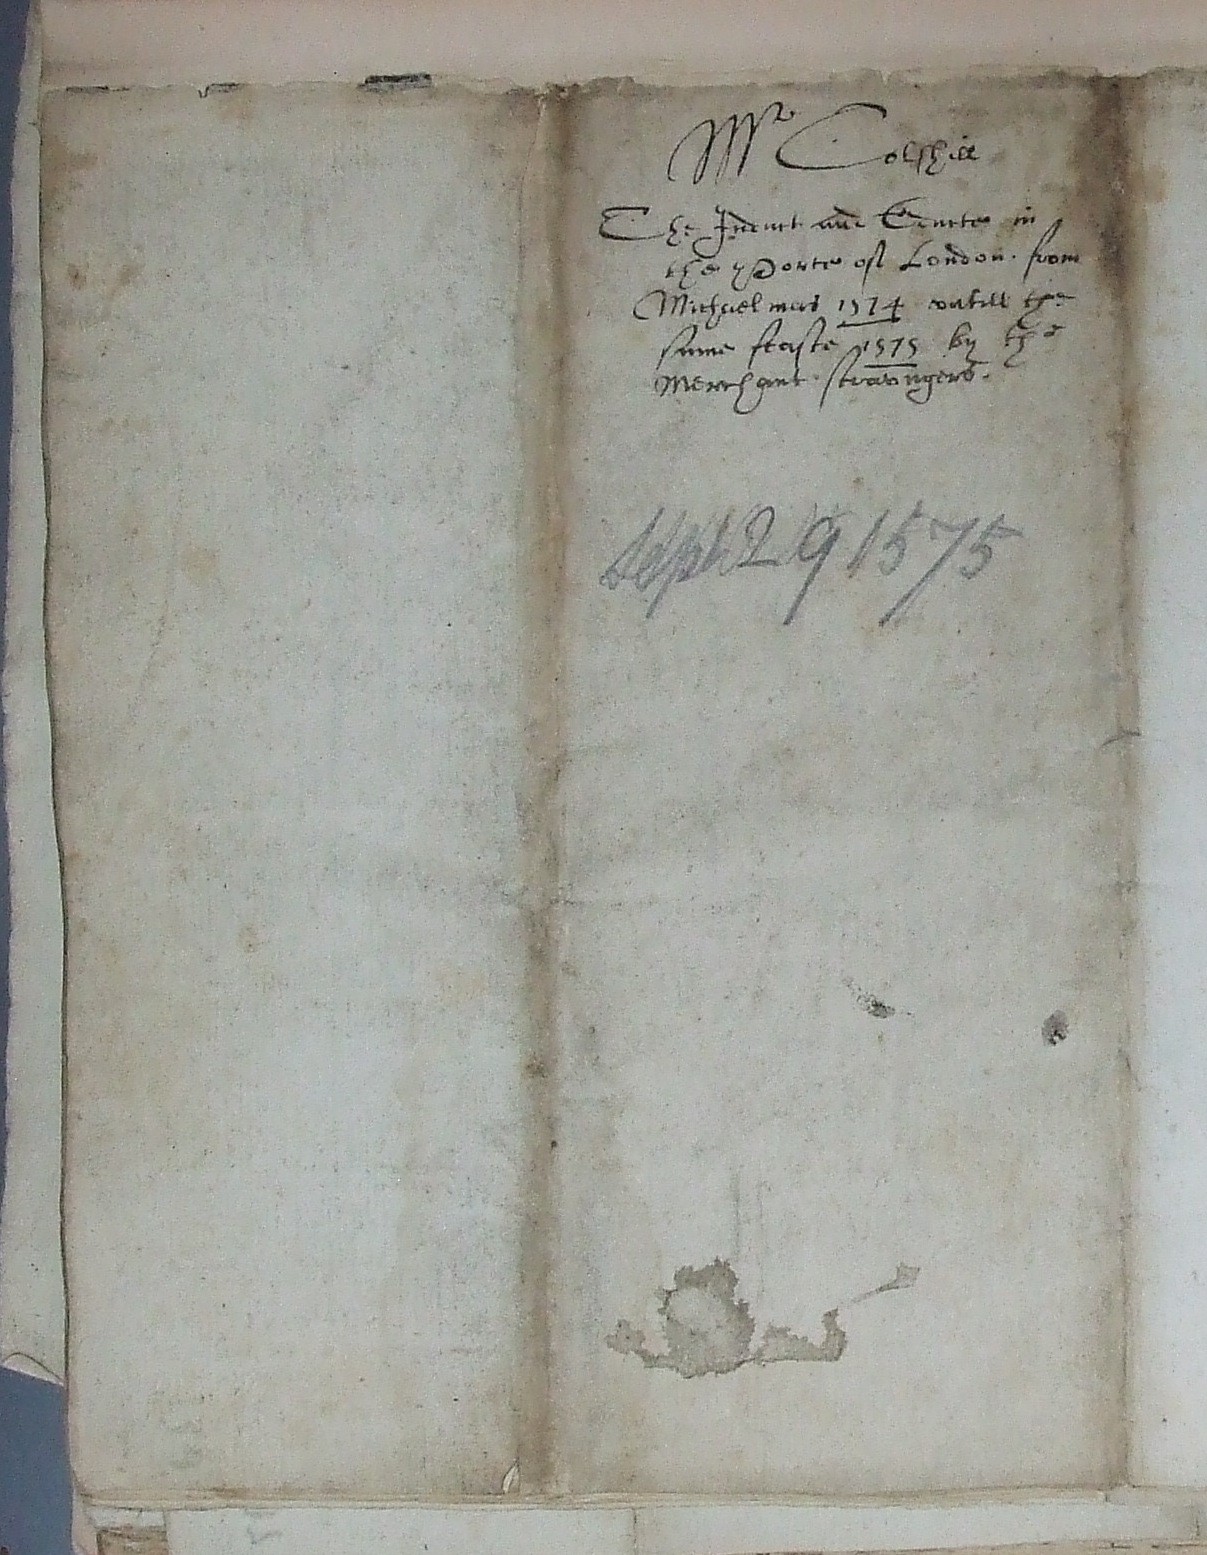 Mr Colshill
The Inwart and Outwarte in
the Porte of London. from
Michaelmas 1574 vntill the
same feaste 1575 by the
Merchant straungers.
Sept 29 1575